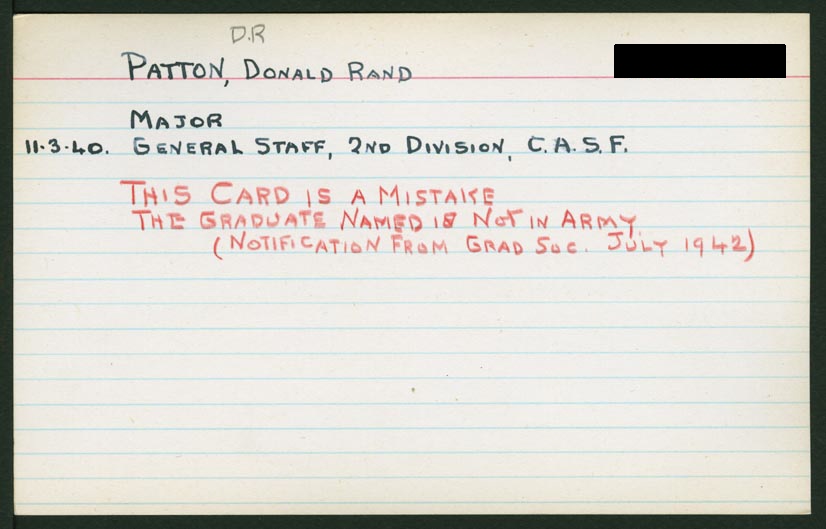 D.R
PATTON, DONALD RAND
MAJOR
11·3·40. GENERAL STAFF, 2ND DIVISION, C.A.S.F.
THIS CARD IS A MISTAKE
THE GRADUATE NAMED IS NOT IN ARMY.
(NOTIFICATION FROM GRAD SOC. JULY 1942)